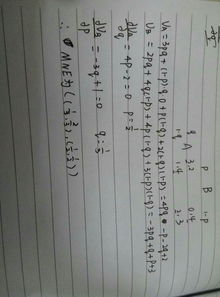 B
P 1-P
A q 3,2 0,4
1-q 1,4 2,3
U_A = 3pq + (1-p)q·0 + p(1-q) + 2(1-q)(1-p) = 4pq - p - 2q + 2
U_B = 2pq + 4q(1-p) + 4p(1-q) + 3(1-p)(1-q) = -3pq + q + p + 3
dU_A/dq = 4p - 2 = 0 p = 1/2
dU_B/dp = -3q + 1 = 0 q = 1/3
∴ MNE为((1/3, 2/3), (1/2, 1/2))